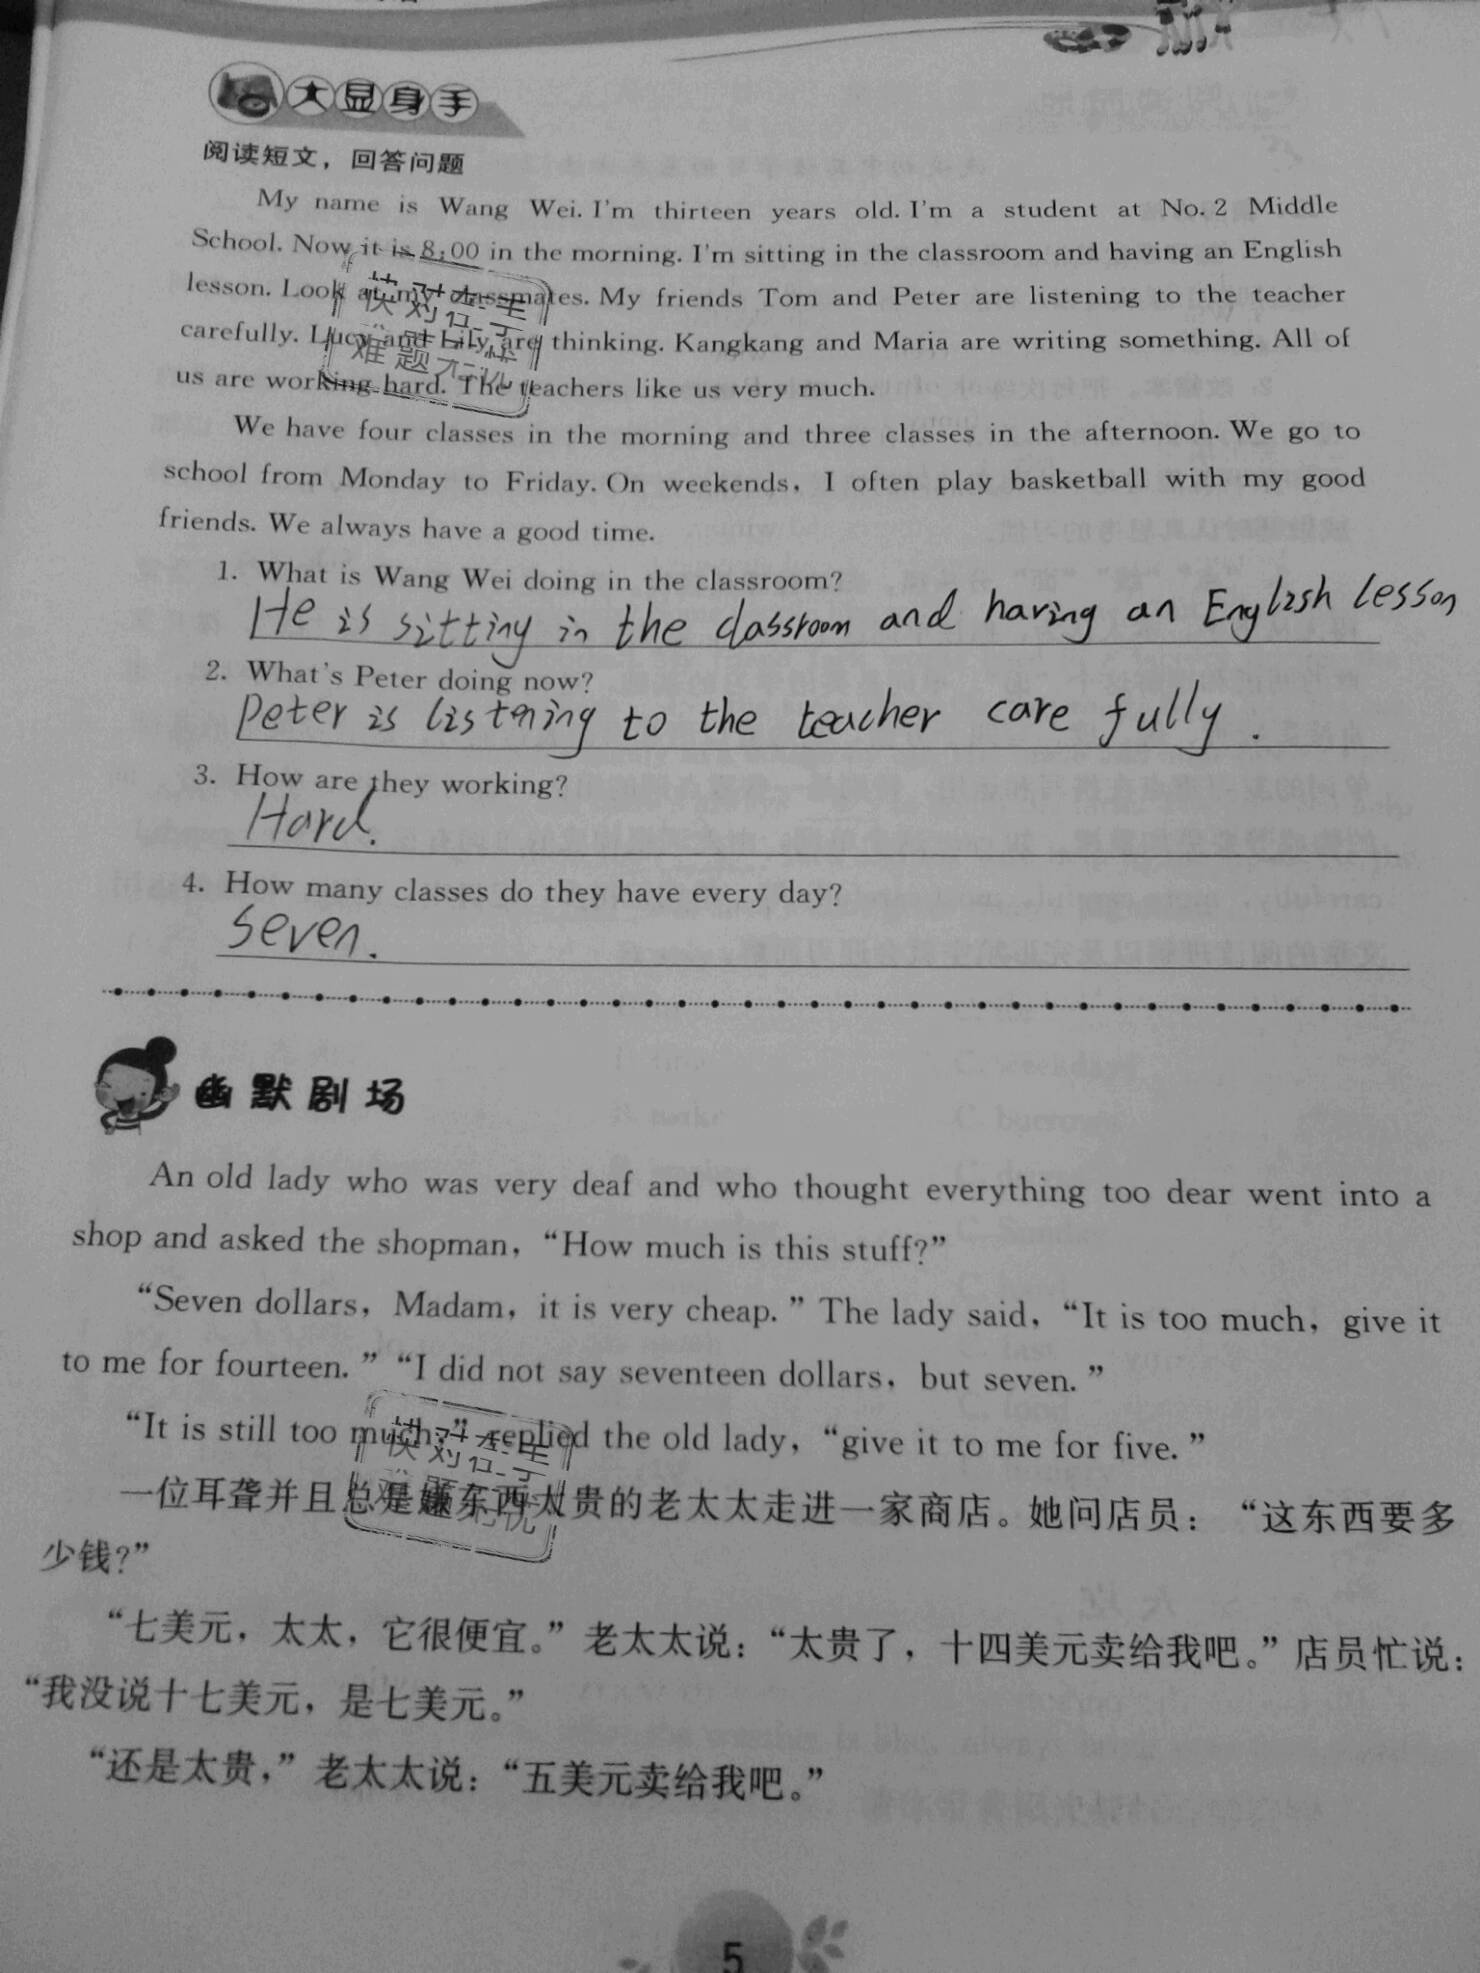 大显身手
阅读短文，回答问题
My name is Wang Wei. I'm thirteen years old. I'm a student at No. 2 Middle
School. Now it is 8:00 in the morning. I'm sitting in the classroom and having an English
lesson. Look at my classmates. My friends Tom and Peter are listening to the teacher
carefully. Lucy and Lily are thinking. Kangkang and Maria are writing something. All of
us are working hard. The teachers like us very much.
We have four classes in the morning and three classes in the afternoon. We go to
school from Monday to Friday. On weekends, I often play basketball with my good
friends. We always have a good time.
1. What is Wang Wei doing in the classroom?
He is sitting in the classroom and having an English lesson
2. What's Peter doing now?
Peter is listening to the teacher care fully.
3. How are they working?
Hard.
4. How many classes do they have every day?
Seven.
幽默剧场
An old lady who was very deaf and who thought everything too dear went into a
shop and asked the shopman, “How much is this stuff?”
“Seven dollars, Madam, it is very cheap.” The lady said, “It is too much, give it
to me for fourteen.” “I did not say seventeen dollars, but seven.”
“It is still too much,” replied the old lady, “give it to me for five.”
一位耳聋并且总是嫌东西太贵的老太太走进一家商店。她问店员：“这东西要多
少钱?”
“七美元，太太，它很便宜。”老太太说：“太贵了，十四美元卖给我吧。”店员忙说：
“我没说十七美元，是七美元。”
“还是太贵，”老太太说：“五美元卖给我吧。”
5